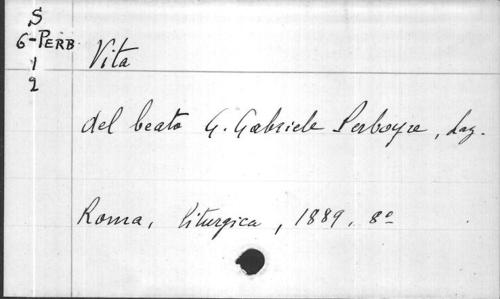 S
G-PERB
1
2
Vita
del beato G. Gabriele Perboyre, Laz.
Roma, liturgica, 1889. 8º